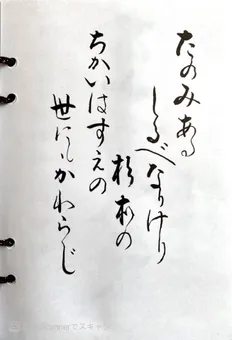 たのみある
しるべなりけり
杉本の
ちかいはすえの
世にもかわらじ